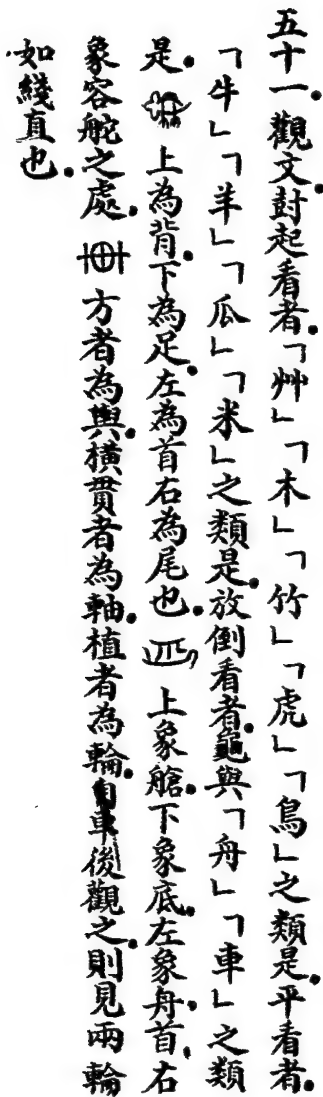 五十一觀文封起看者.「艸」「木」「竹」「虎」「鳥」之類是.平看者.
「牛」「羊」「瓜」「米」之類是.放倒看者.龜與「舟」「車」之類
是.上為背.下為足.左為首右為尾也.上象艙.下象底.左象舟首.右
象容舵之處.方者為輿.橫貫者為軸.植者為輪.自車後觀之.則見兩輪
如綫直也.